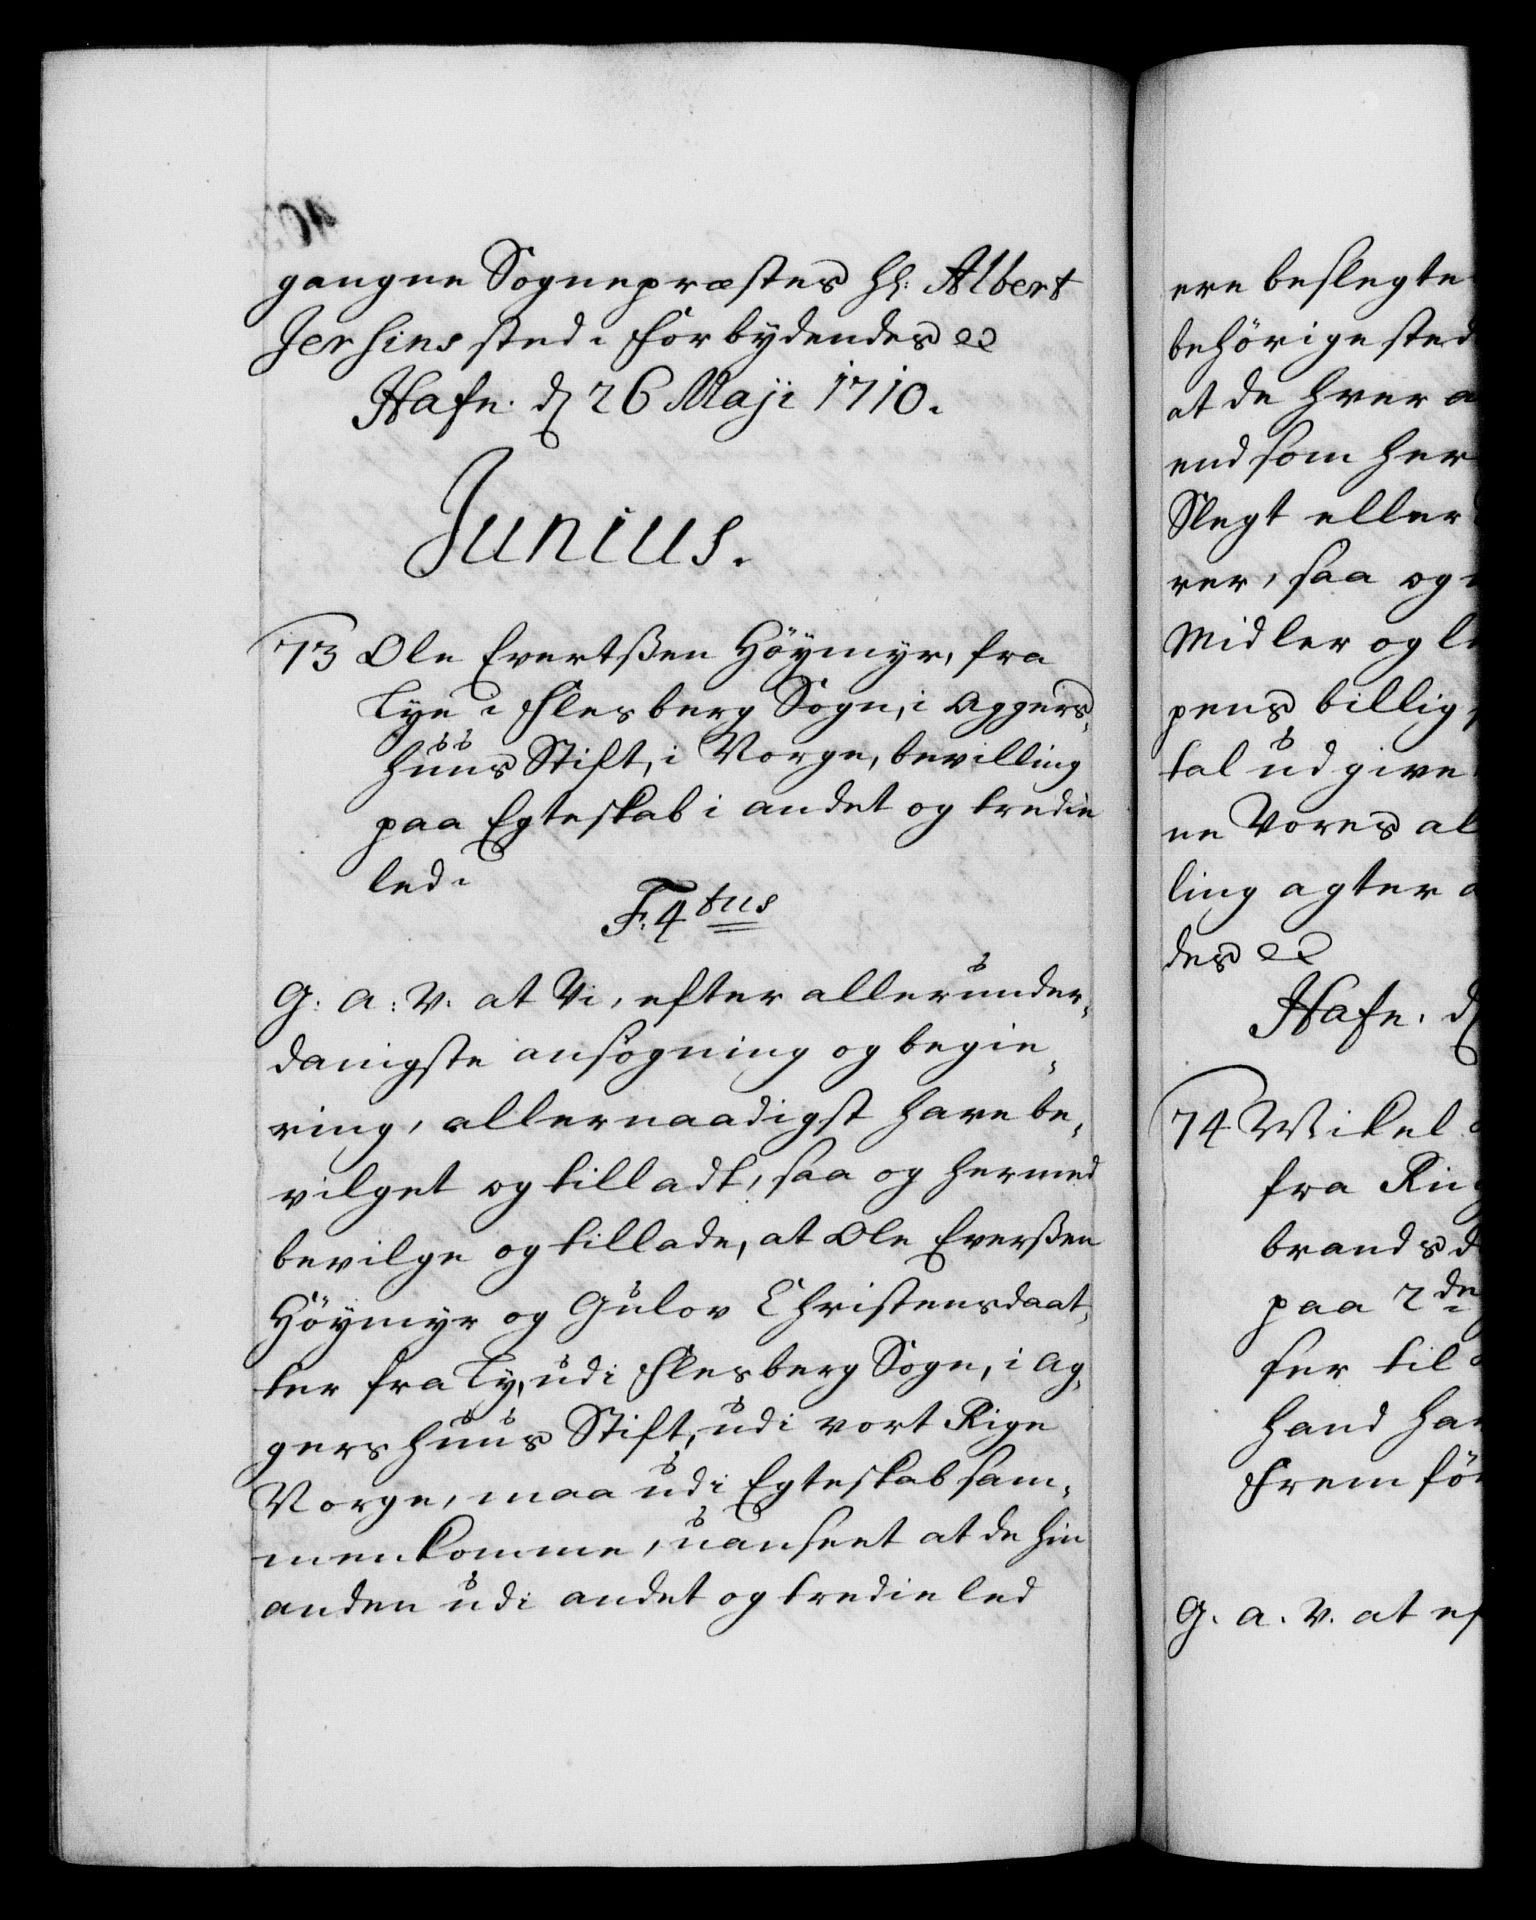 gangne Sognepræstes Hl: Albert
Jersins sted. Forbydendes etc
Hafn. d. 26 Maji 1710.
Junius.
73 Ole Evertßen Höÿmÿr, fra
Lÿe i Flesberg Sogn, i Aggers-
huus Stift, i Norge, bevilling
paa Egteskab i andet og tredie
led.
F. 4tus
G: A: V. at Vi, efter allerunder-
danigste ansøgning og begie-
ring, allernaadigst have be-
vilget og tilladt, saa og hermed
bevilge og tillade, at Ole Everßen
Höÿmÿr og Gulov Christensdaat-
ter fra Lÿ, udi Flesberg Sogn, i Ag-
gershuus Stift, udi vort Rige
Norge, maa udi Egteskab sam-
menkomme, uanseet at de hin
anden udi andet og tredie led
ere beslegte
behörige sted
at de hver
end som her
Slegt eller
rer, saa og
Midler og
pens billig
tal udgive
ne Vores al
ling agter
des etc
Hafn. d.
74 Mikel
fra
brands
paa 2den
ser til
hand har
Frem för
G. A. V. at ef